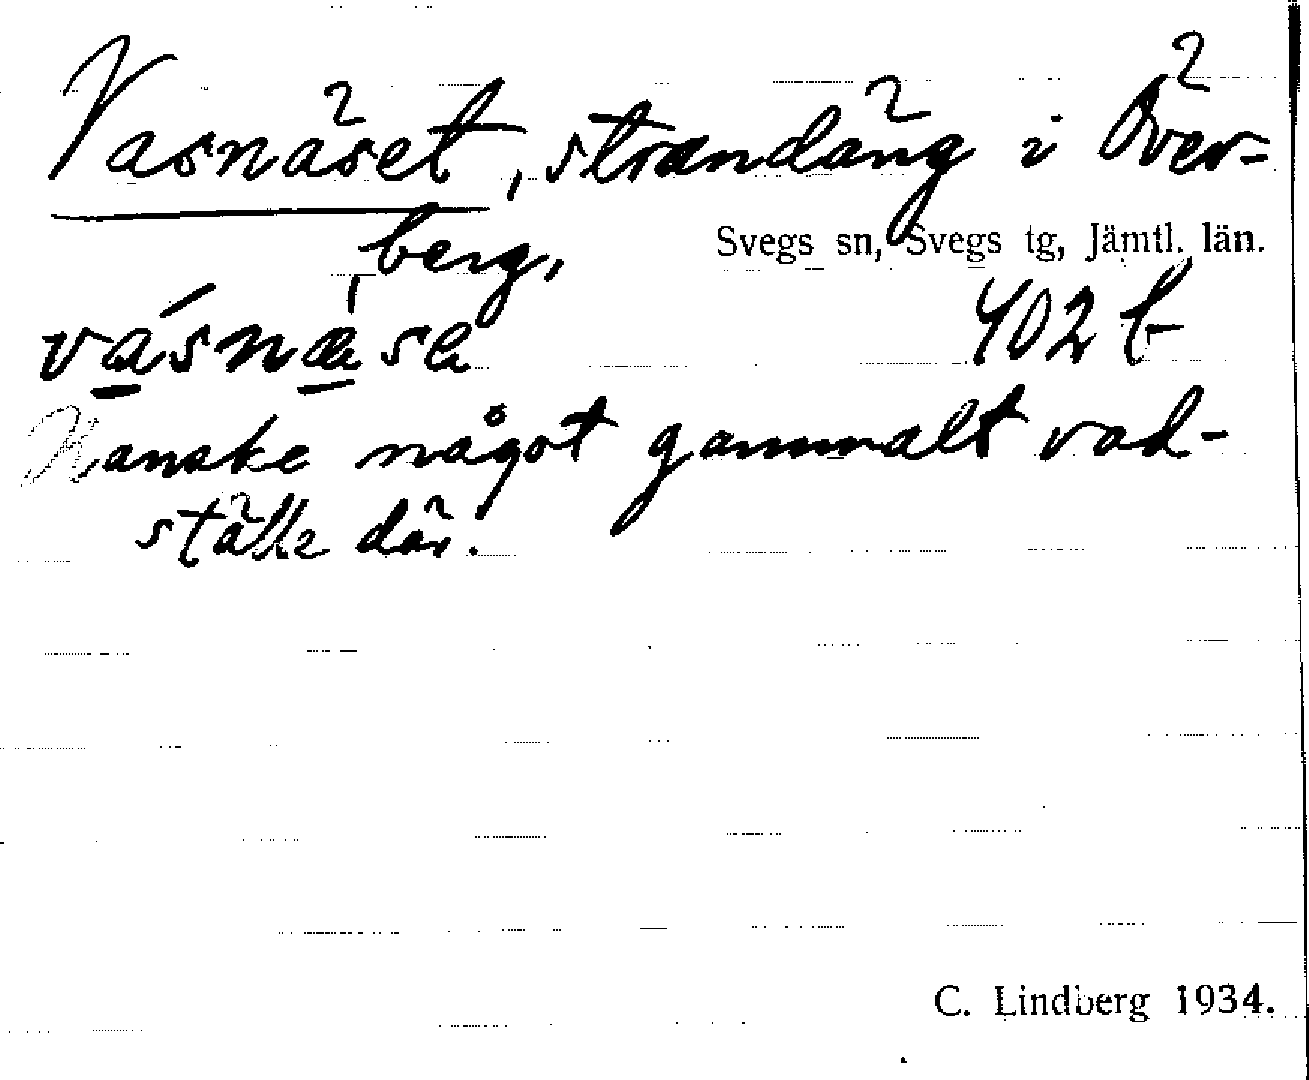 Vasnäset, strandäng i Över-
berg,
Svegs sn, Svegs tg, Jämtl. län.
vásnæ̀sa
402 b
Kanske något gammalt vad-
ställe där.
C. Lindberg 1934.